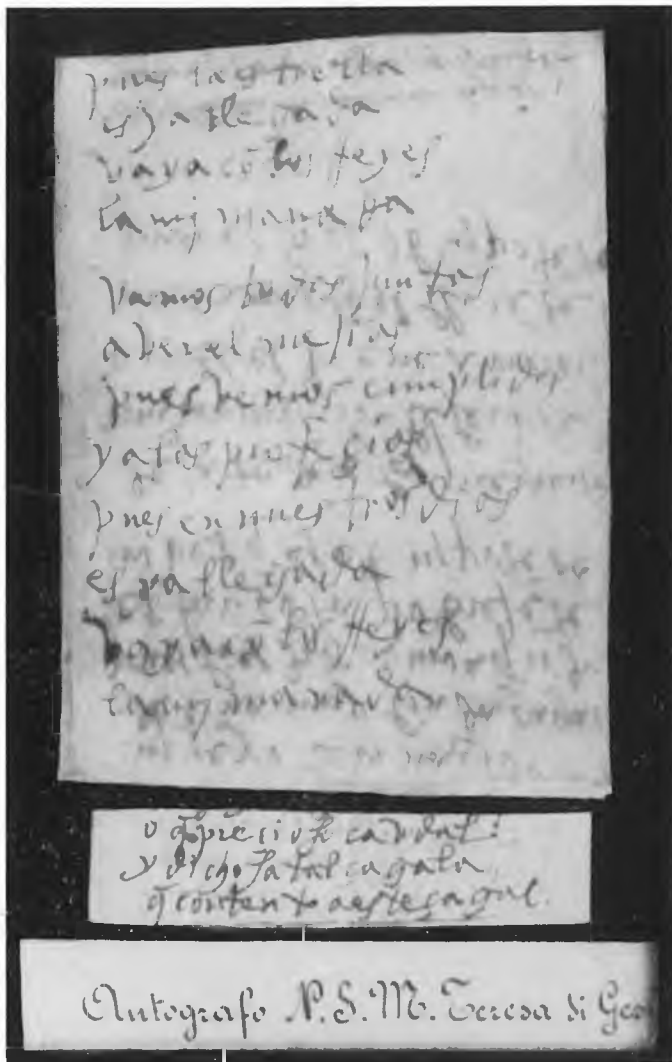 pues la estrella
es ya llegada
vaya cõ los rreyes
la mj manada
vamos todos juntos
a ver el mesias
pues vemos cunplidas
ya las profecias
pues en nuestros dias
es ya llegada
vaya cõ los rreyes
la mj manada
o q̃ precioso caudal
y dichosa tal çagala
q̃ contenta a este çagal.
Autografo N. S. M. Teresa di Gesù